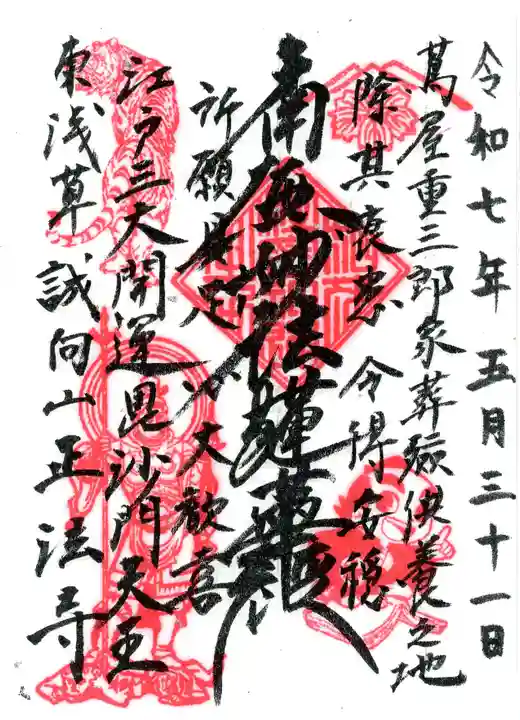 令和七年五月三十一日
蔦屋重三郎家葬供養之地
除其衰患 令得安穏
南無妙法蓮華經
所願具足 心大歓喜
江戸三大開運毘沙門天王
東浅草 誠向山正法寺